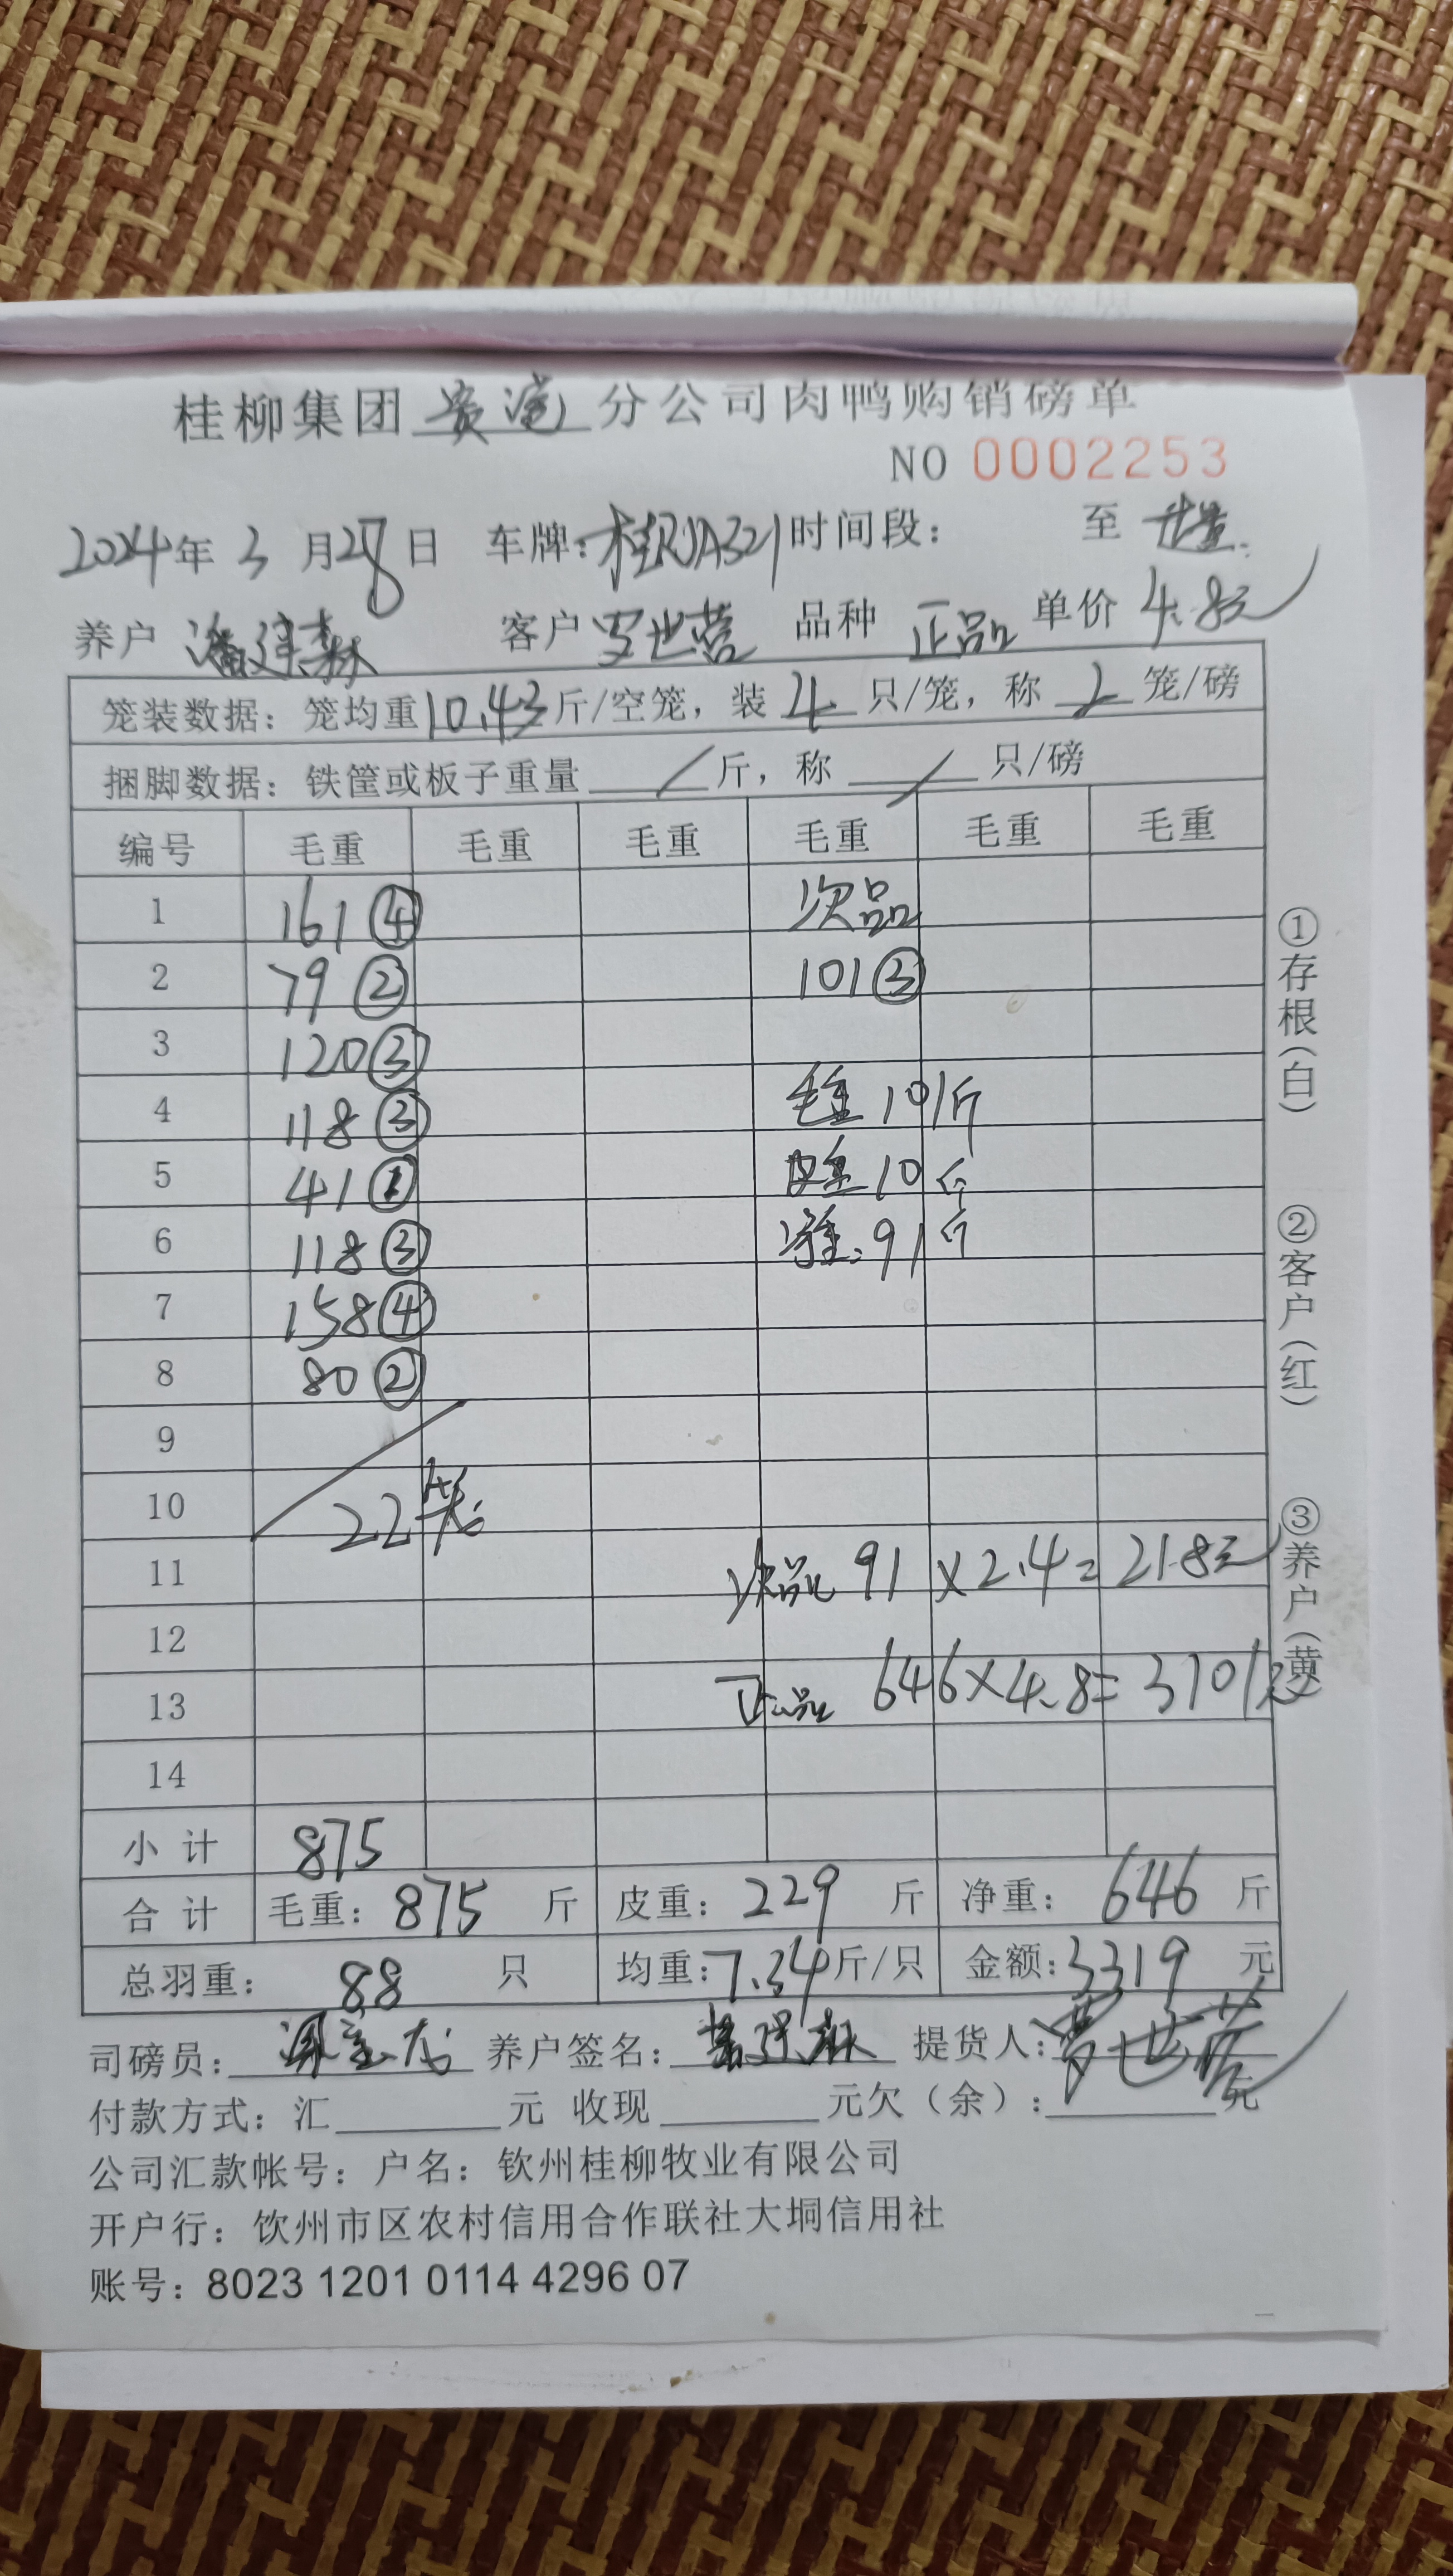 桂柳集团 贵港 分公司肉鸭购销磅单
NO 0002253
2024年 3 月28日 车牌:桂RJA321 时间段: 至
养户 潘建森 客户 罗世营 品种 正品 单价 4.8元
笼装数据: 笼均重10.43斤/空笼, 装 4 只/笼, 称 2 笼/磅
捆脚数据: 铁筐或板子重量 / 斤, 称 / 只/磅
编号 毛重 毛重 毛重 毛重 毛重 毛重
1 161④ 次品
2 79② 101③
3 120③
4 118③ 毛重 101斤
5 41① 皮重 10斤
6 118③ 净重: 91斤
7 158④
8 80②
9
10 22笼
11 次品 91×2.4=218元
12
13 正品 646×4.8=3101元
14
小计 875
合计 毛重: 875 斤 皮重: 229 斤 净重: 646 斤
总羽重: 88 只 均重:7.34斤/只 金额:3319 元
司磅员: 养户签名: 提货人:罗世营
付款方式: 汇 元 收现 元欠(余): 元
公司汇款帐号: 户名: 钦州桂柳牧业有限公司
开户行: 饮州市区农村信用合作联社大垌信用社
账号: 8023 1201 0114 4296 07
①存根(白)
②客户(红)
③养户(黄)